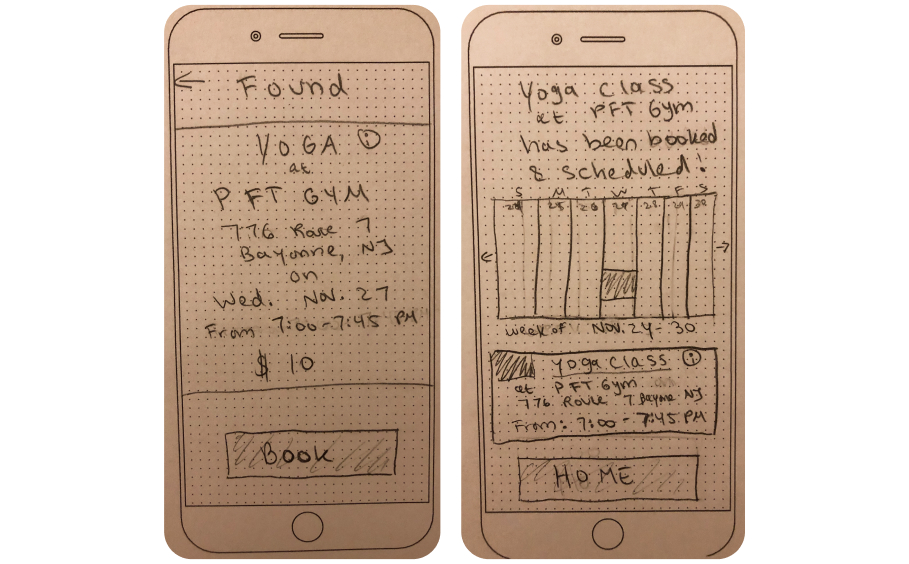 Found
YOGA i
at
PFT GYM
776 Route 7
Bayonne, NJ
on
Wed. Nov. 27
From 7:00-7:45 PM
$ 10
Book
Yoga class
at PFT Gym
has been booked
& scheduled!
S M T W T F S
24 25 26 27 28 29 30
week of Nov. 24 - 30
Yoga Class i
at PFT Gym
776 Route 7 Bayonne NJ
From: 7:00 - 7:45 PM
HOME